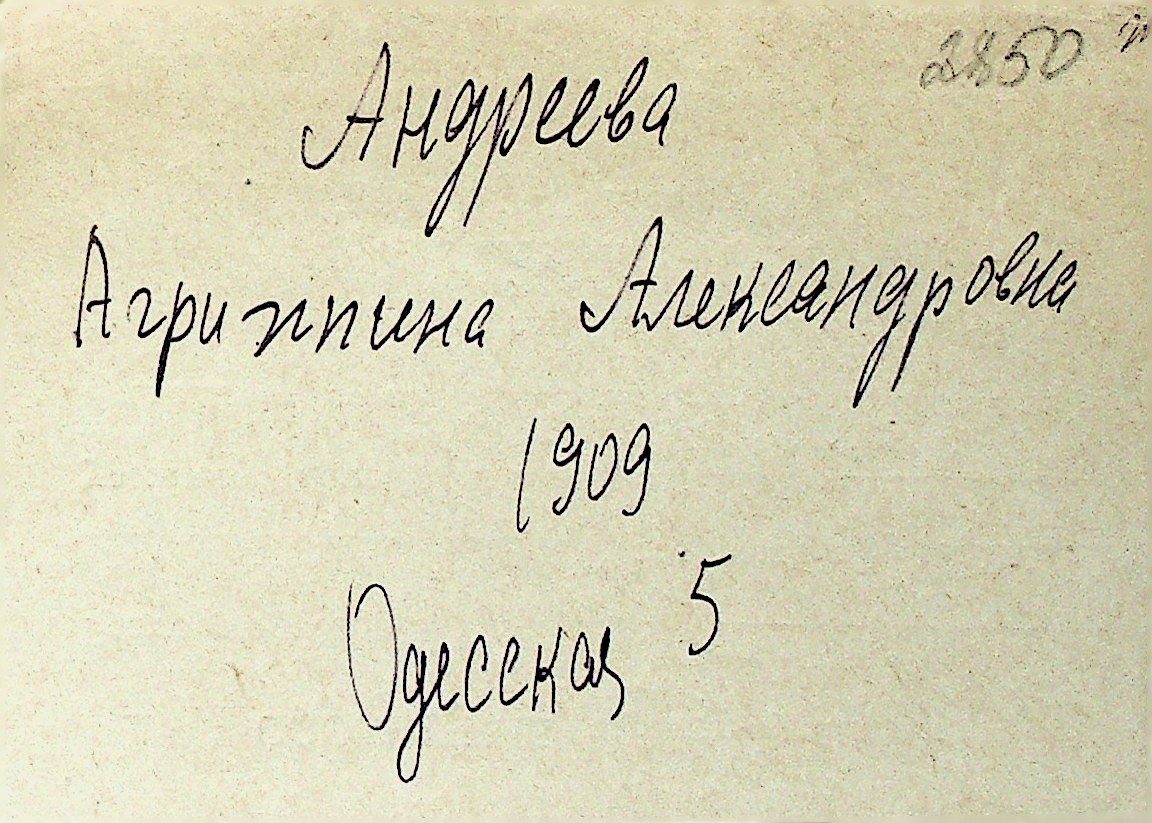 2850
Андреева
Агриппина Александровна
1909
Одесская 5